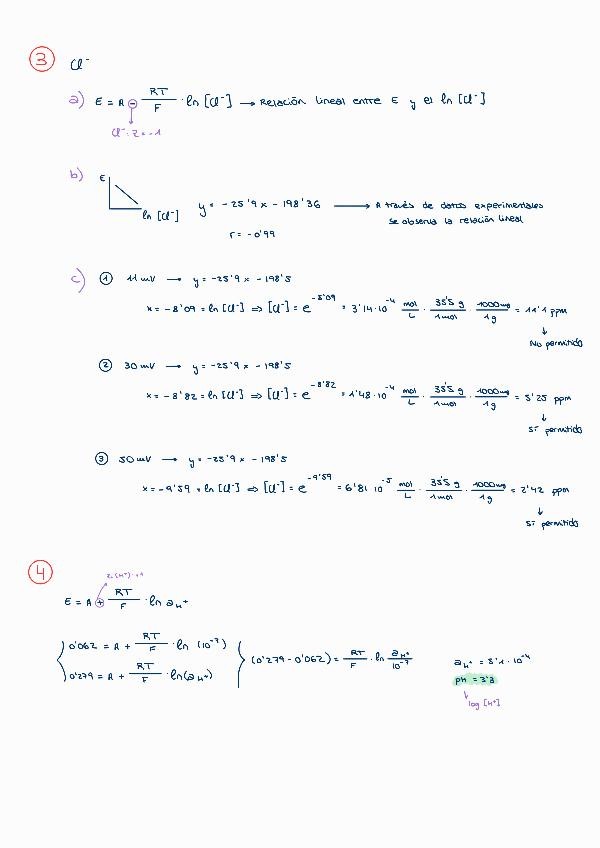 3 Cl⁻
a) E = A ⊖ RT/F · ln [Cl⁻] → Relación lineal entre E y el ln [Cl⁻]
Cl⁻: z = -1
b) E
ln [Cl⁻] y = -25'9 x - 198'36 → A través de datos experimentales
se observa la relación lineal
r = -0'99
c) ① 11 mV → y = -25'9 x - 198'5
x = -8'09 = ln [Cl⁻] ⇒ [Cl⁻] = e^-8'09 = 3'14·10⁻⁴ mol/L · 35'5 g/1 mol · 1000 mg/1 g = 11'1 ppm
↓
No permitido
② 30 mV → y = -25'9 x - 198'5
x = -8'82 = ln [Cl⁻] ⇒ [Cl⁻] = e^-8'82 = 1'48·10⁻⁴ mol/L · 35'5 g/1 mol · 1000 mg/1 g = 5'25 ppm
↓
Sí permitido
③ 50 mV → y = -25'9 x - 198'5
x = -9'59 = ln [Cl⁻] ⇒ [Cl⁻] = e^-9'59 = 6'81·10⁻⁵ mol/L · 35'5 g/1 mol · 1000 mg/1 g = 2'42 ppm
↓
Sí permitido
4
z (H⁺) = +1
E = A ⊕ RT/F · ln a H⁺
0'062 = A + RT/F · ln (10⁻⁷)
0'279 = A + RT/F · ln (a H⁺)
(0'279 - 0'062) = RT/F · ln a H⁺/10⁻⁷
a H⁺ = · 10⁻⁴
pH =
log [H⁺]